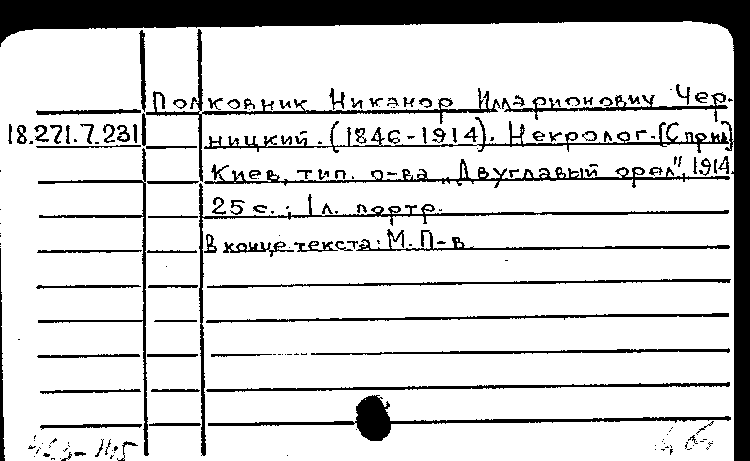 Полковник Никанор Илларионович Чер-
18.271.7.231 ницкий. (1846-1914). Некролог. [С прил]
Киев, тип. о-ва „Двуглавый орел", 1914.
25 с.; 1 л. портр.
В конце текста: М. П-в.